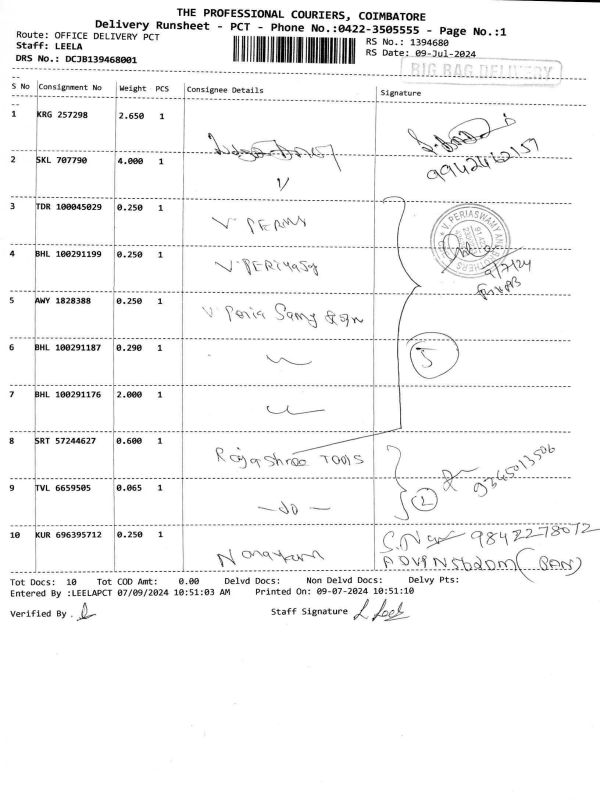 THE PROFESSIONAL COURIERS, COIMBATORE
Delivery Runsheet - PCT - Phone No.:0422-3505555 - Page No.:1
Route: OFFICE DELIVERY PCT
RS No.: 1394680
Staff: LEELA
RS Date: 09-Jul-2024
DRS No.: DCJB139468001
BIG BAG DELIVERY
S No Consignment No Weight PCS Consignee Details Signature
1 KRG 257298 2.650 1
9942462157
2 SKL 707790 4.000 1
3 TDR 100045029 0.250 1 V PERIYA
V. PERIASWAMY AND BROTHERS
4 BHL 100291199 0.250 1 V PERIYASY
9/7/24
5 AWY 1828388 0.250 1 V Peria Samy
6 BHL 100291187 0.290 1 5
7 BHL 100291176 2.000 1
8 SRT 57244627 0.600 1 Rajashree TOOLS
9345013506
9 TVL 6659505 0.065 1 -do- 2
10 KUR 696395712 0.250 1 Narayan 9842278072
(PAN)
Tot Docs: 10 Tot COD Amt: 0.00 Delvd Docs: Non Delvd Docs: Delvy Pts:
Entered By :LEELAPCT 07/09/2024 10:51:03 AM Printed On: 09-07-2024 10:51:10
Verified By . Staff Signature L Leela